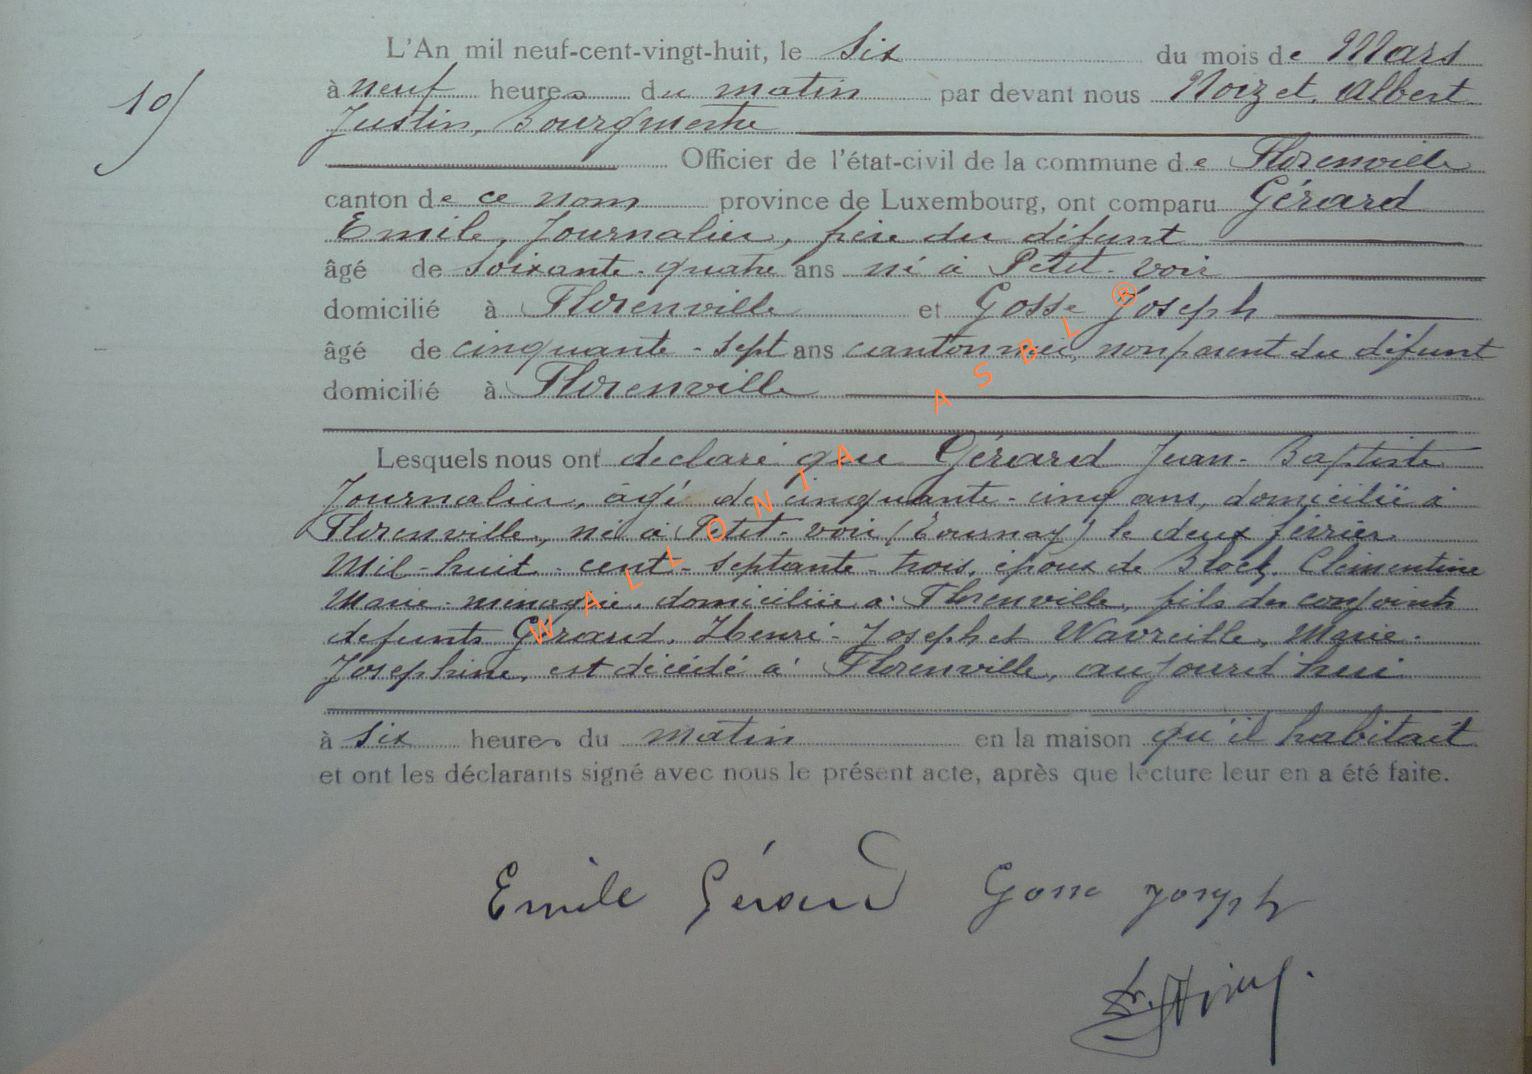 L'An mil neuf-cent-vingt-huit, le six du mois de Mars
10/
à neuf heures du matin par devant nous Noizet, Albert
Justin, Bourgmestre
Officier de l'état-civil de la commune de Florenville
canton de ce nom province de Luxembourg, ont comparu Gérard
Emile, Journalier, frère du défunt
âgé de soixante-quatre ans né à Petit-Voir
domicilié à Florenville et Gosse Joseph
âgé de cinquante-sept ans cantonnier, non parent du défunt
domicilié à Florenville
Lesquels nous ont declaré que Gérard Jean-Baptiste
Journalier, âgé de cinquante-cinq ans, domicilié à
Florenville, né à Petit-voir (Tournay) le deux février
Mil-huit-cent-septante-trois, époux de Block, Clémentine
Marie-ménagère, domiciliée à Florenville, fils des conjoints
defunts Gérard, Henri-Joseph et Wavreille, Marie-
Josephine, est décédé à Florenville, aujourd'hui
à six heures du matin en la maison qu'il habitait
et ont les déclarants signé avec nous le présent acte, après que lecture leur en a été faite.
Emile Gérard Gosse Joseph
WALLONIA ASBL ®